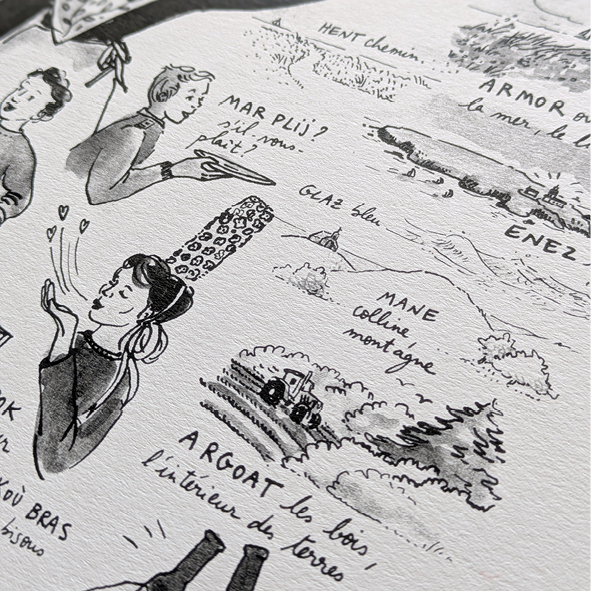 HENT chemin
ARMOR ou
la mer, le
MAR PLIJ?
s'il-vous-
plaît?
GLAZ bleu
ENEZ
MANE
colline
montagne
ARGOAT les bois,
l'intérieur des terres
BRAS
bisous